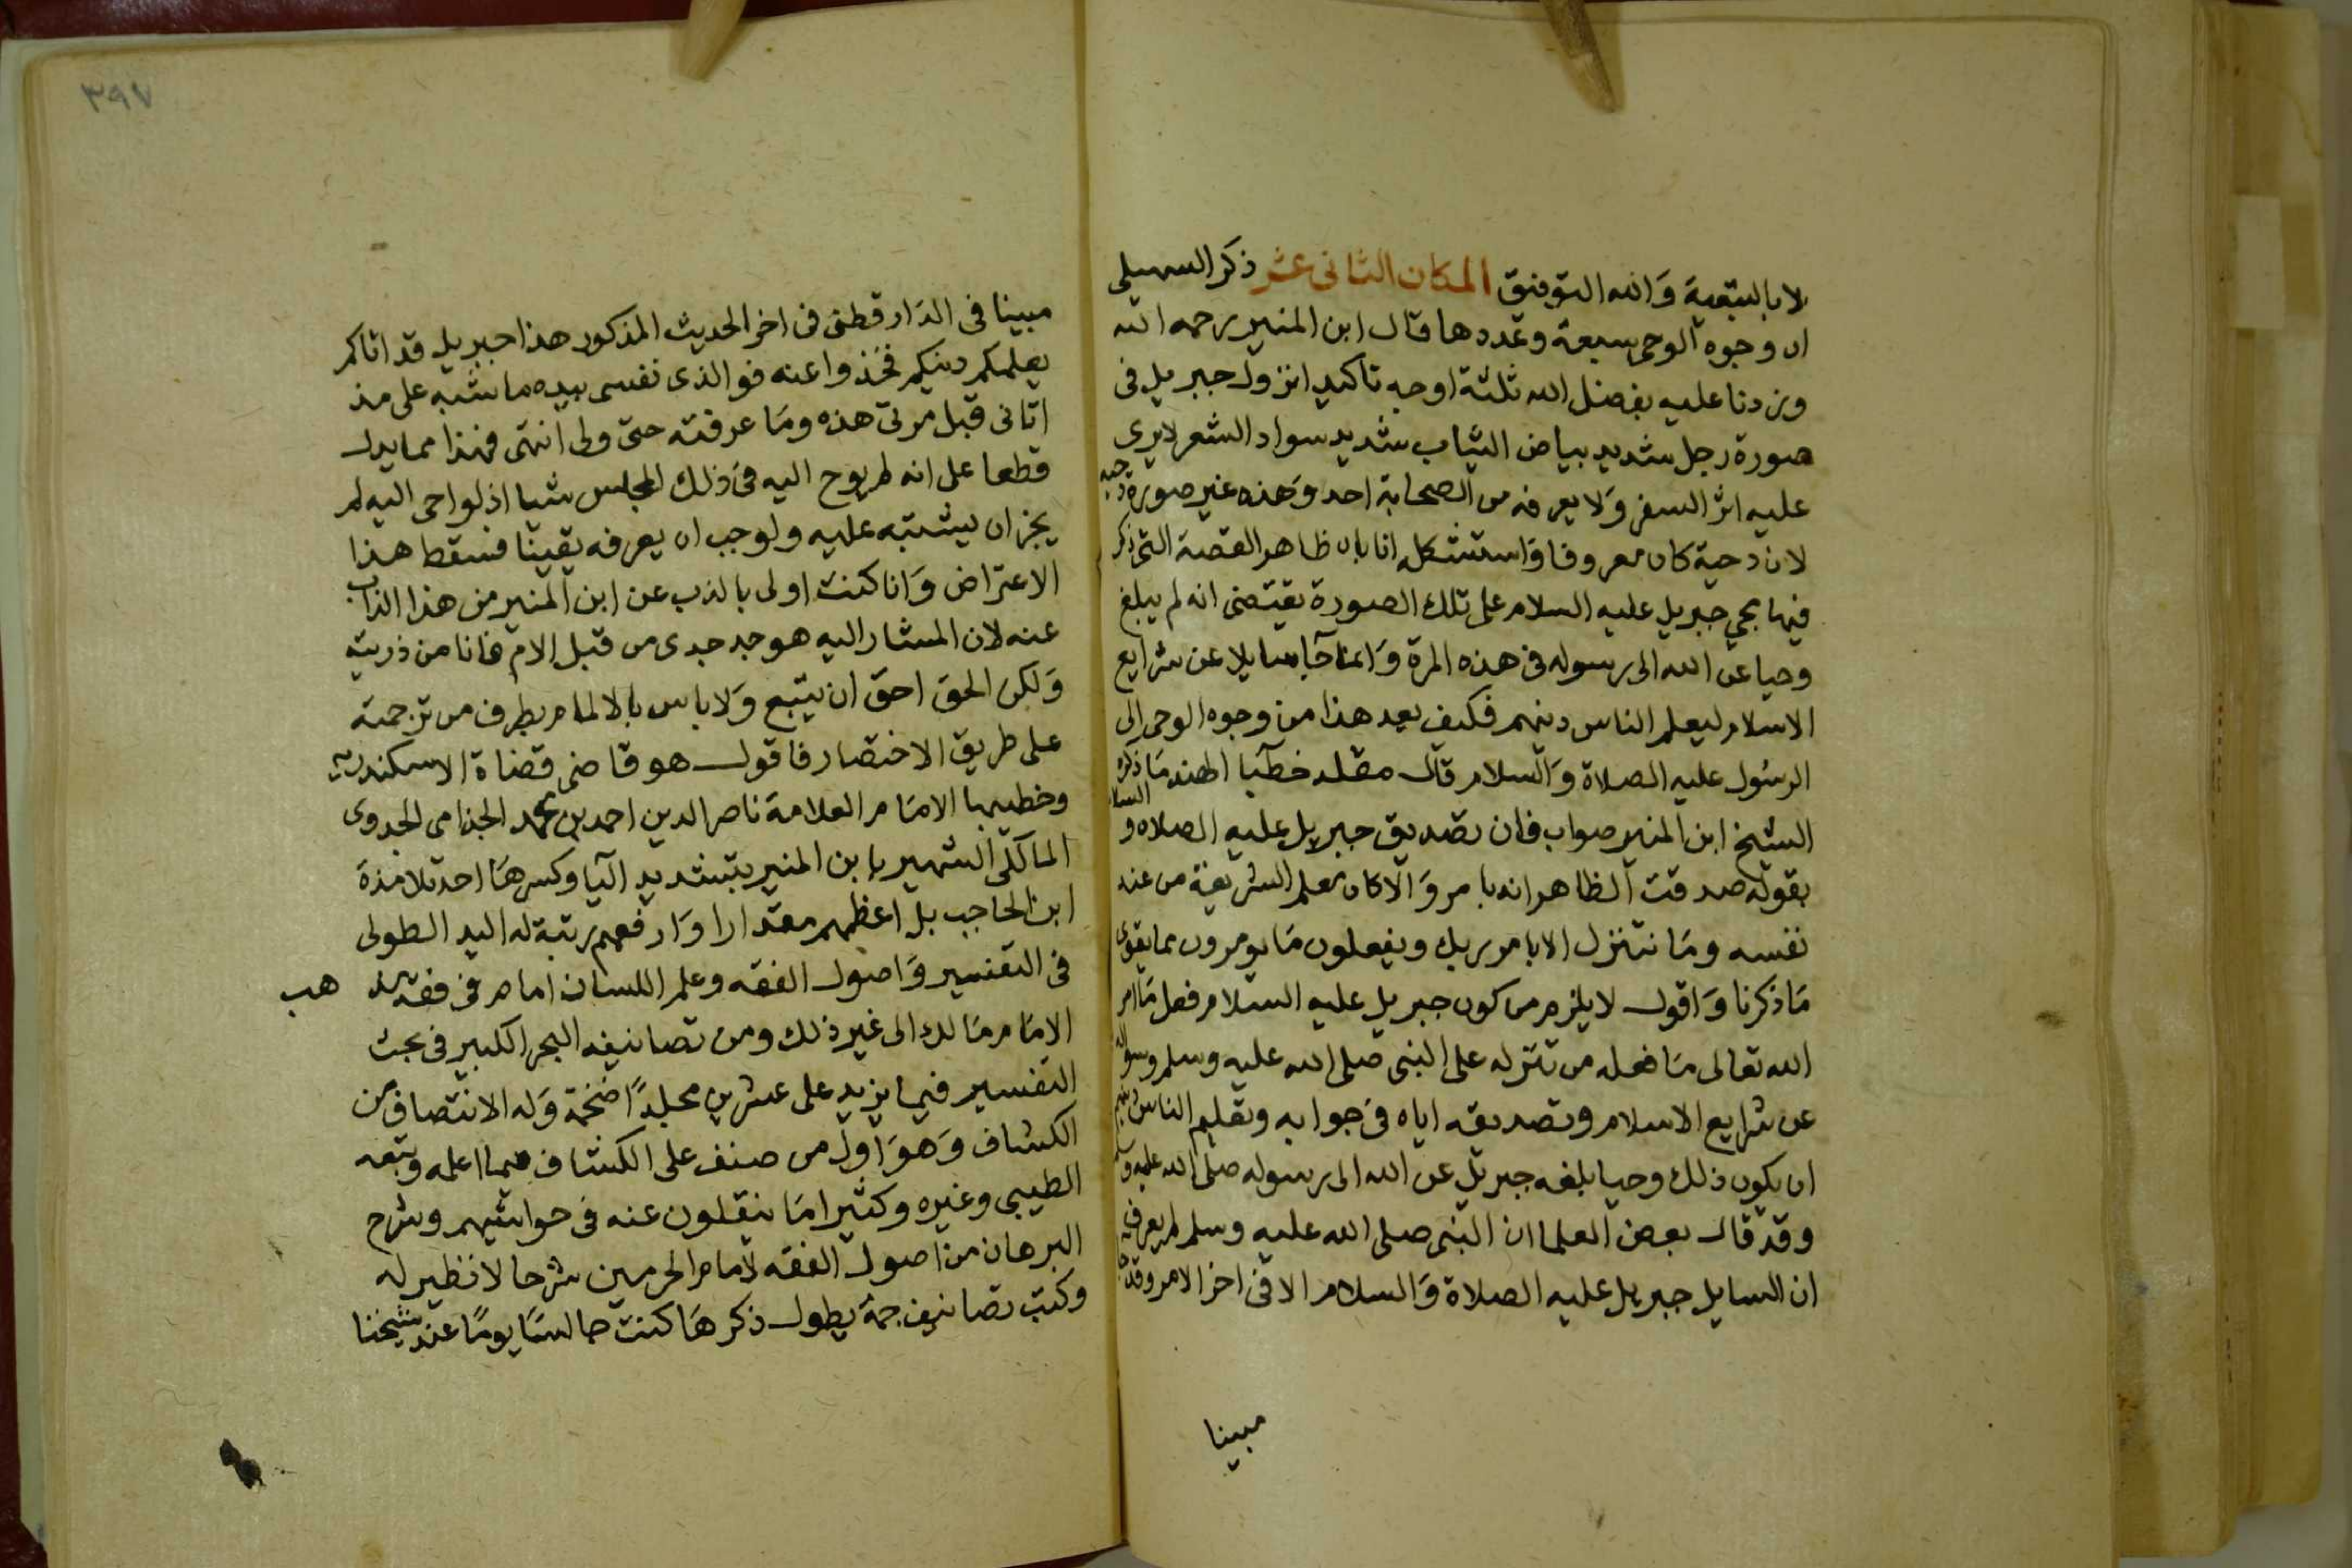 لا بالتبعية والله التوفيق المكان الثانى عشر ذكر السهيلى
ان وجوه الوحى سبعة وعددها قال ابن المنير رحمه الله
وزدنا عليه بفضل الله ثلثة اوجه تاكيد انزول جبريل فى
صورة رجل شديد بياض الثياب شديد سواد الشعر لايرى
عليه اثر السفر ولا يعرفه من الصحابة احد وهذه غير صورة دحيه
لان دحية كان معروفا واستشكله انا بان ظاهر القصة التى ذكر
فيها مجي جبريل عليه السلام على تلك الصورة يقتضى انه لم يبلغ
وحيا عن الله الى رسوله فى هذه المرة وانما جا سايلا عن شرايع
الاسلام ليعلم الناس دينهم فكيف يعد هذا من وجوه الوحى الى
الرسول عليه الصلاة والسلام قال خطيبا الهند ما ذكره
الشيخ ابن المنير صواب فان تصديق جبريل عليه الصلاه والسلام
بقوله صدقت الظاهر انه بامر والا كان معلم الشريعة من عند
نفسه وما نتنزل الا بامر ربك ويفعلون ما يومرون مما يقوى
ما ذكرنا واقول لا يلزم من كون جبريل عليه السلام فعل ما امر
الله تعالى ما فعله من تنزله على النبى صلى الله عليه وسلم وسواله
عن شرايع الاسلام وتصديقه اياه فى جوابه وتعليم الناس دينهم
ان يكون ذلك وحيا بلغه جبريل عن الله الى رسوله صلى الله عليه وسلم
وقد قال بعض العلما ان النبى صلى الله عليه وسلم لم يعرف
ان السايل جبريل عليه الصلاة والسلام الا فى اخر الامر وقد جا
مبينا
٣٩٧
مبينا فى الدارقطنى فى اخر الحديث المذكور هذا جبريل قد اتاكم
يعلمكم دينكم فخذوا عنه فوالذى نفسى بيده ما شبه على مذ
اتانى قبل مرتى هذه وما عرفته حتى ولى انتهى فهذا مما يدل
قطعا على انه لم يوح اليه فى ذلك المجلس شيا اذ لو اوحى اليه لم
يجز ان يشتبه عليه ولوجب ان يعرفه يقينا فسقط هذا
الاعتراض وانا كنت اولى بالذب عن ابن المنير من هذا الذاب
عنه لان المشار اليه هو جد جدى من قبل الام فانا من ذريته
ولكن الحق احق ان يتبع ولا باس بالالمام بطرف من ترجمته
على طريق الاختصار فاقول هو قاضى قضاة الاسكندرية
وخطيبها الامام العلامة ناصر الدين احمد بن محمد الجذامى الجروى
المالكى الشهير بابن المنير بتشديد اليا وكسرها احد تلامذة
ابن الحاجب بل اعظمهم مقدارا وارفعهم رتبة له اليد الطولى
فى التفسير واصول الفقه وعلم اللسان امام فى فقه مذهب
الامام مالك الى غير ذلك ومن تصانيفه البحر الكبير فى بحث
التفسير فيما يزيد على عشرين مجلدا ضخمة وله الانتصاف من
الكشاف وهو اول من صنف على الكشاف فيما اعلمه وتبعه
الطيبى وغيره وكثيرا ما ينقلون عنه فى حواشيهم وشرح
البرهان من اصول الفقه لامام الحرمين شرحا لا نظير له
وكتب تصانيف جمة يطول ذكرها كنت جالسا يوما عند شيخنا